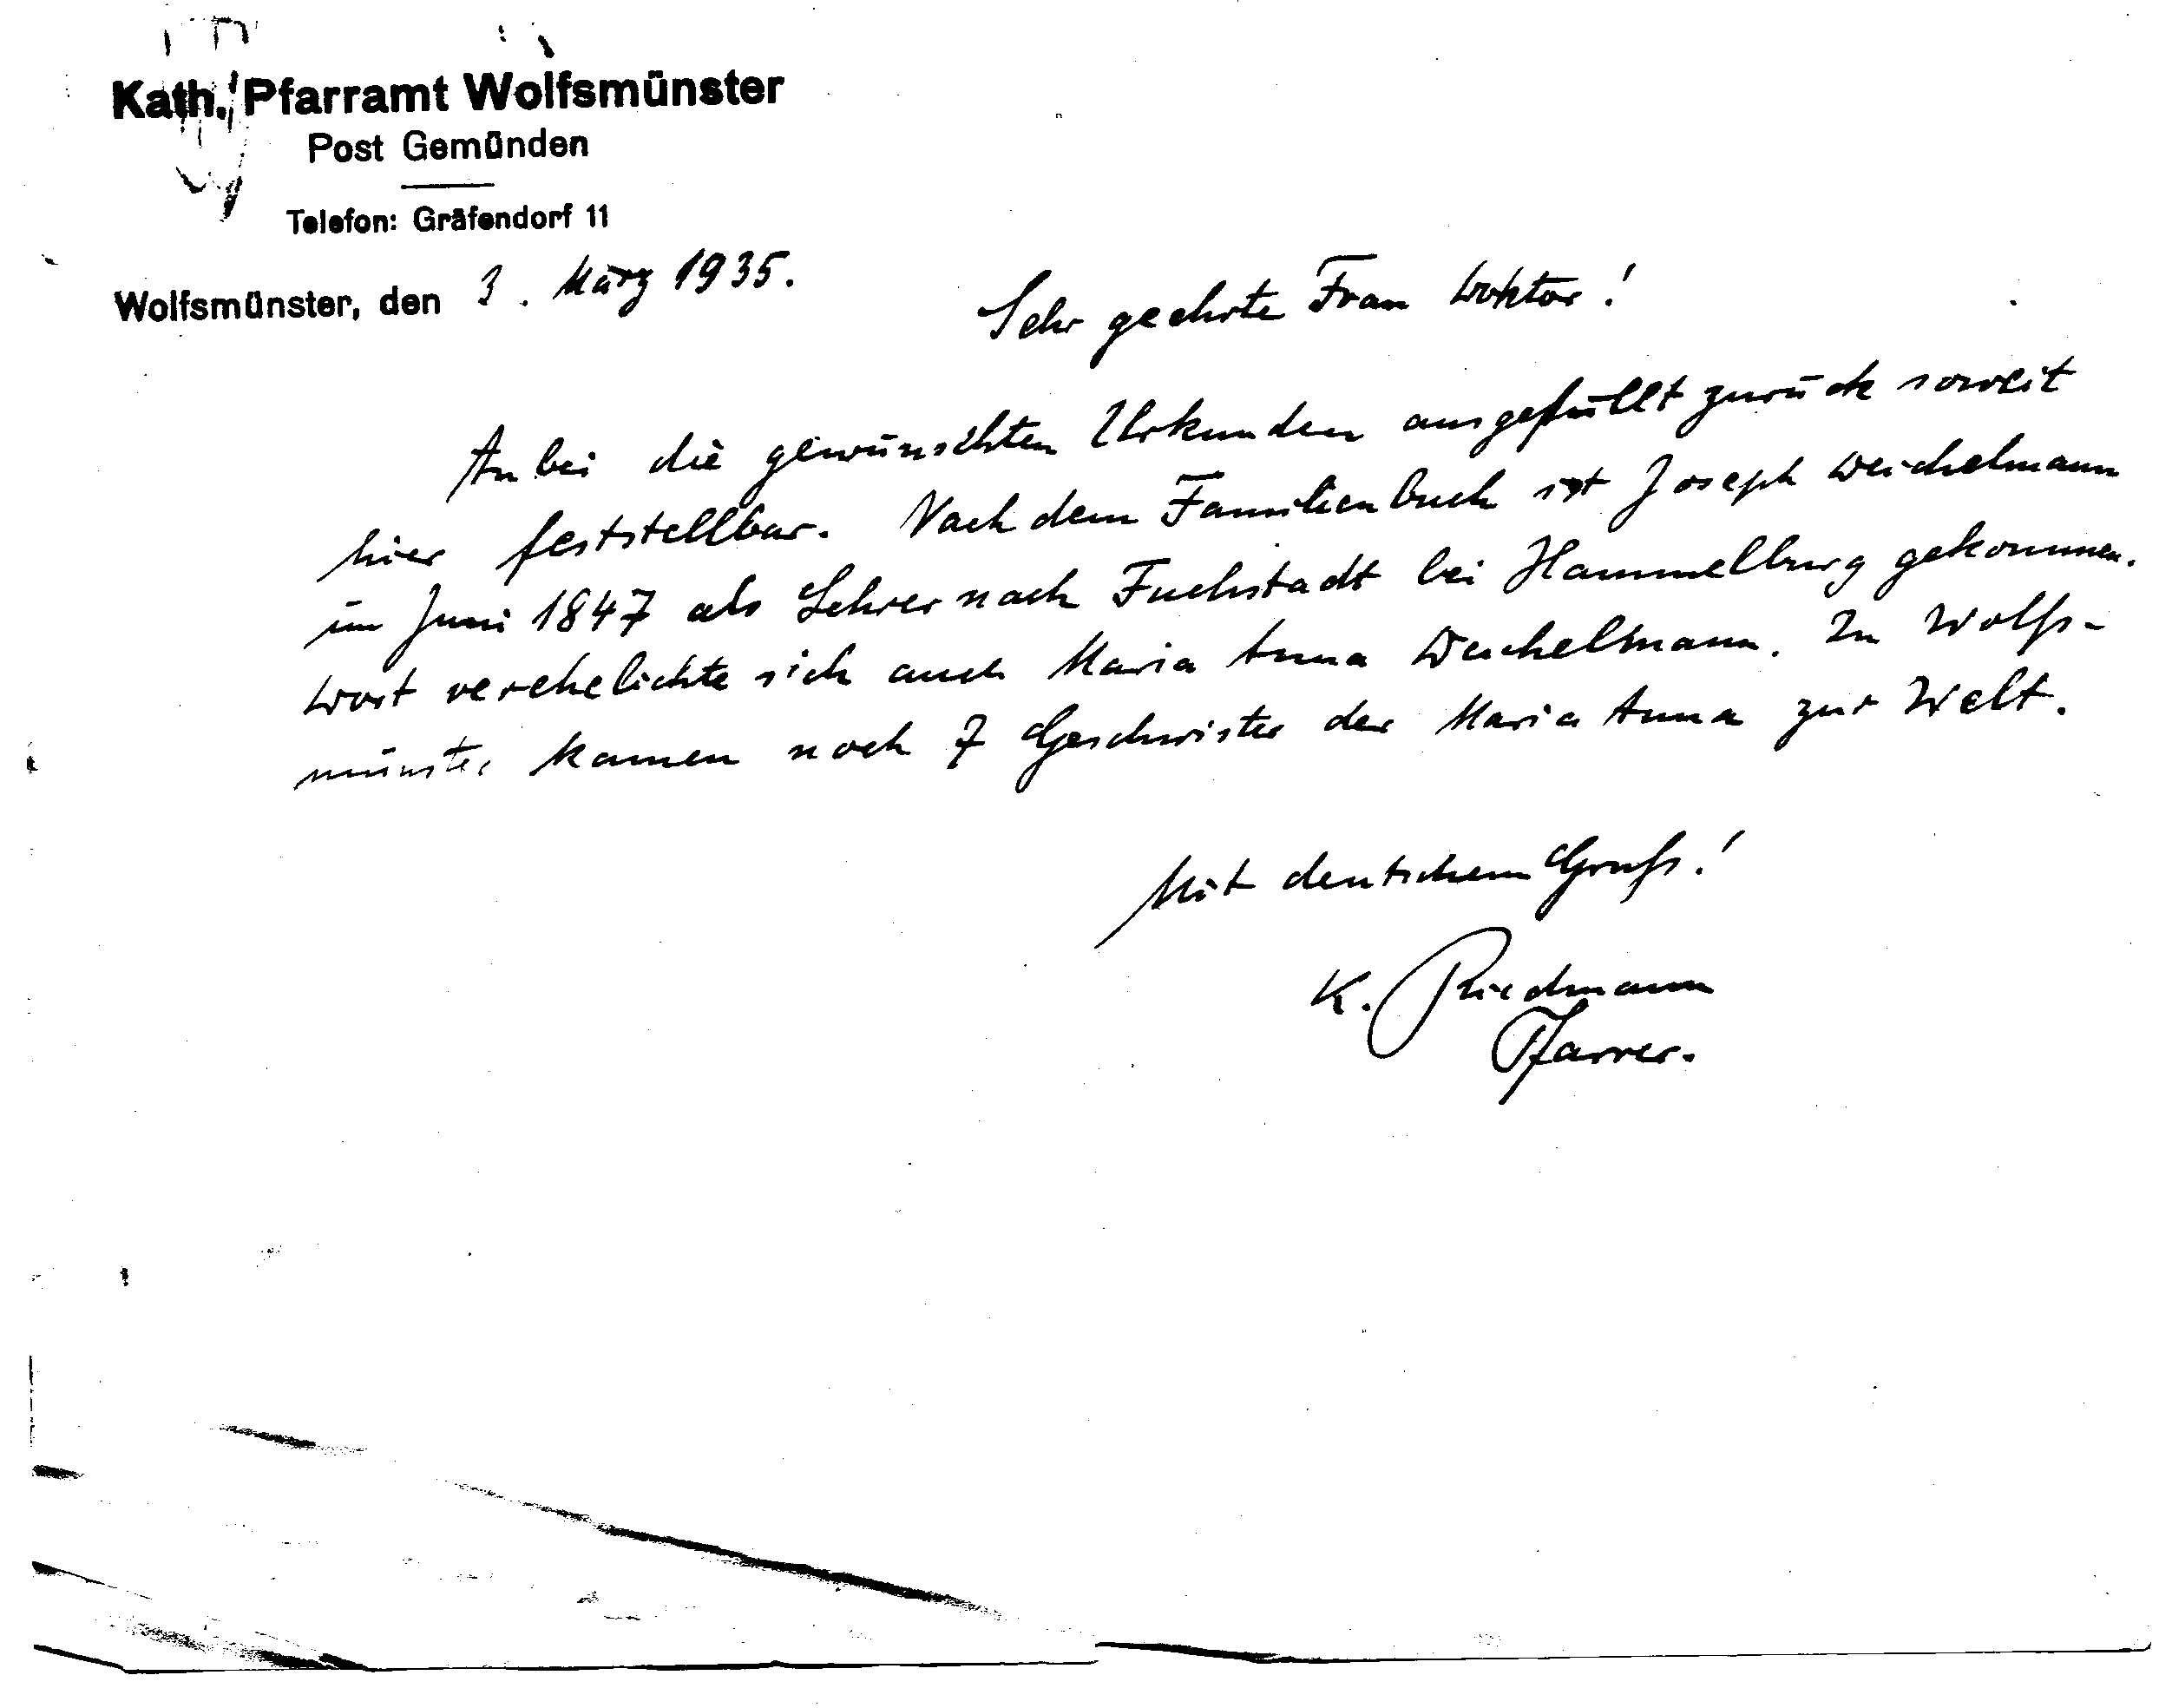 Kath. Pfarramt Wolfsmünster
Post Gemünden
Telefon: Gräfendorf 11
Wolfsmünster, den 3. März 1935.
Sehr geehrte Frau Doktor!
Anbei die gewünschten Urkunden ausgefüllt zurück soweit
hier feststellbar. Nach dem Familienbuch ist Joseph Weichelmann
im Juni 1847 als Lehrer nach Fuchsstadt bei Hammelburg gekommen.
Dort verehelichte sich auch Maria Anna Weichelmann. In Wolfs-
münster kamen noch 7 Geschwister der Maria Anna zur Welt.
Mit deutschem Gruß!
K. Riedmann
Pfarrer.